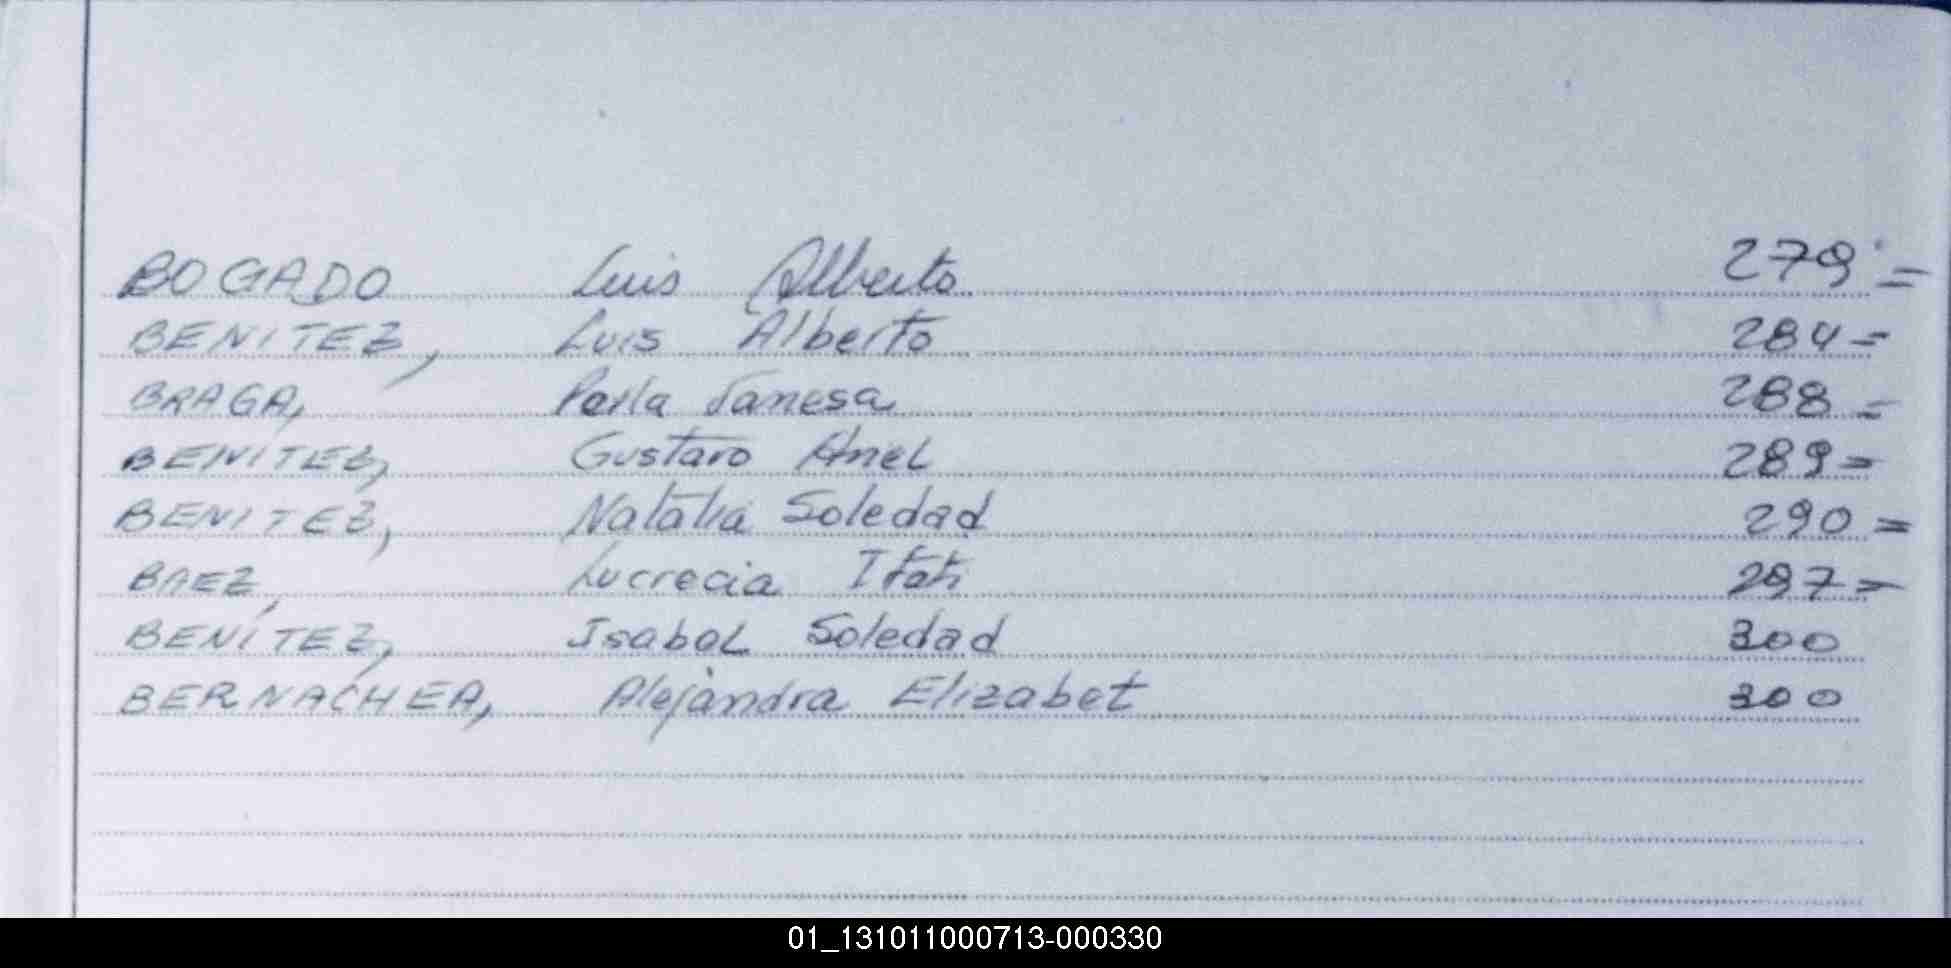 BOGADO Luis Alberto 279 =
BENITEZ, Luis Alberto 284 =
BRAGA, Perla Vanesa 288 =
BENITEZ, Gustavo Ariel 289 =
BENITEZ, Natalia Soledad 290 =
BAEZ, Lucrecia Itatí 297 =
BENÍTEZ, Isabel Soledad 300
BERNACHEA, Alejandra Elizabet 300
01_131011000713-000330